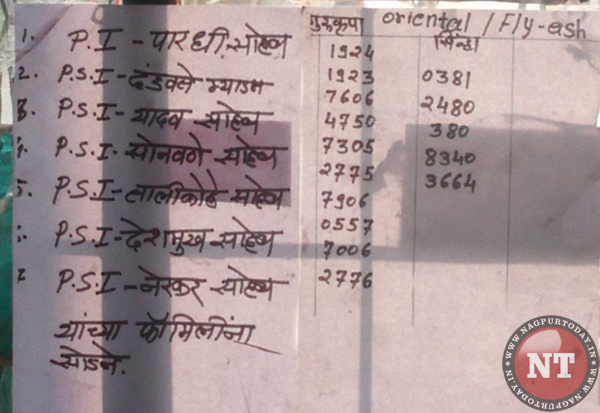 1. P.I - पारधी साहेब
2. P.S.I - दंडवले म्याडम
3. P.S.I - यादव साहेब
4. P.S.I. - सोनवणे साहेब
5. P.S.I - तालीकोटे साहेब
P.S.I - देशमुख साहेब
P.S.I - नेरकर साहेब
यांच्या फॅमिलींना
सोडने.
गुरुकृपा
1924
1923
7606
4750
7305
2775
7906
0557
7006
2776
oriental / Fly-ash
0381
2480
380
8340
3664
WWW.NAGPURTODAY.IN
NT
WWW.NAGPURTODAY.IN